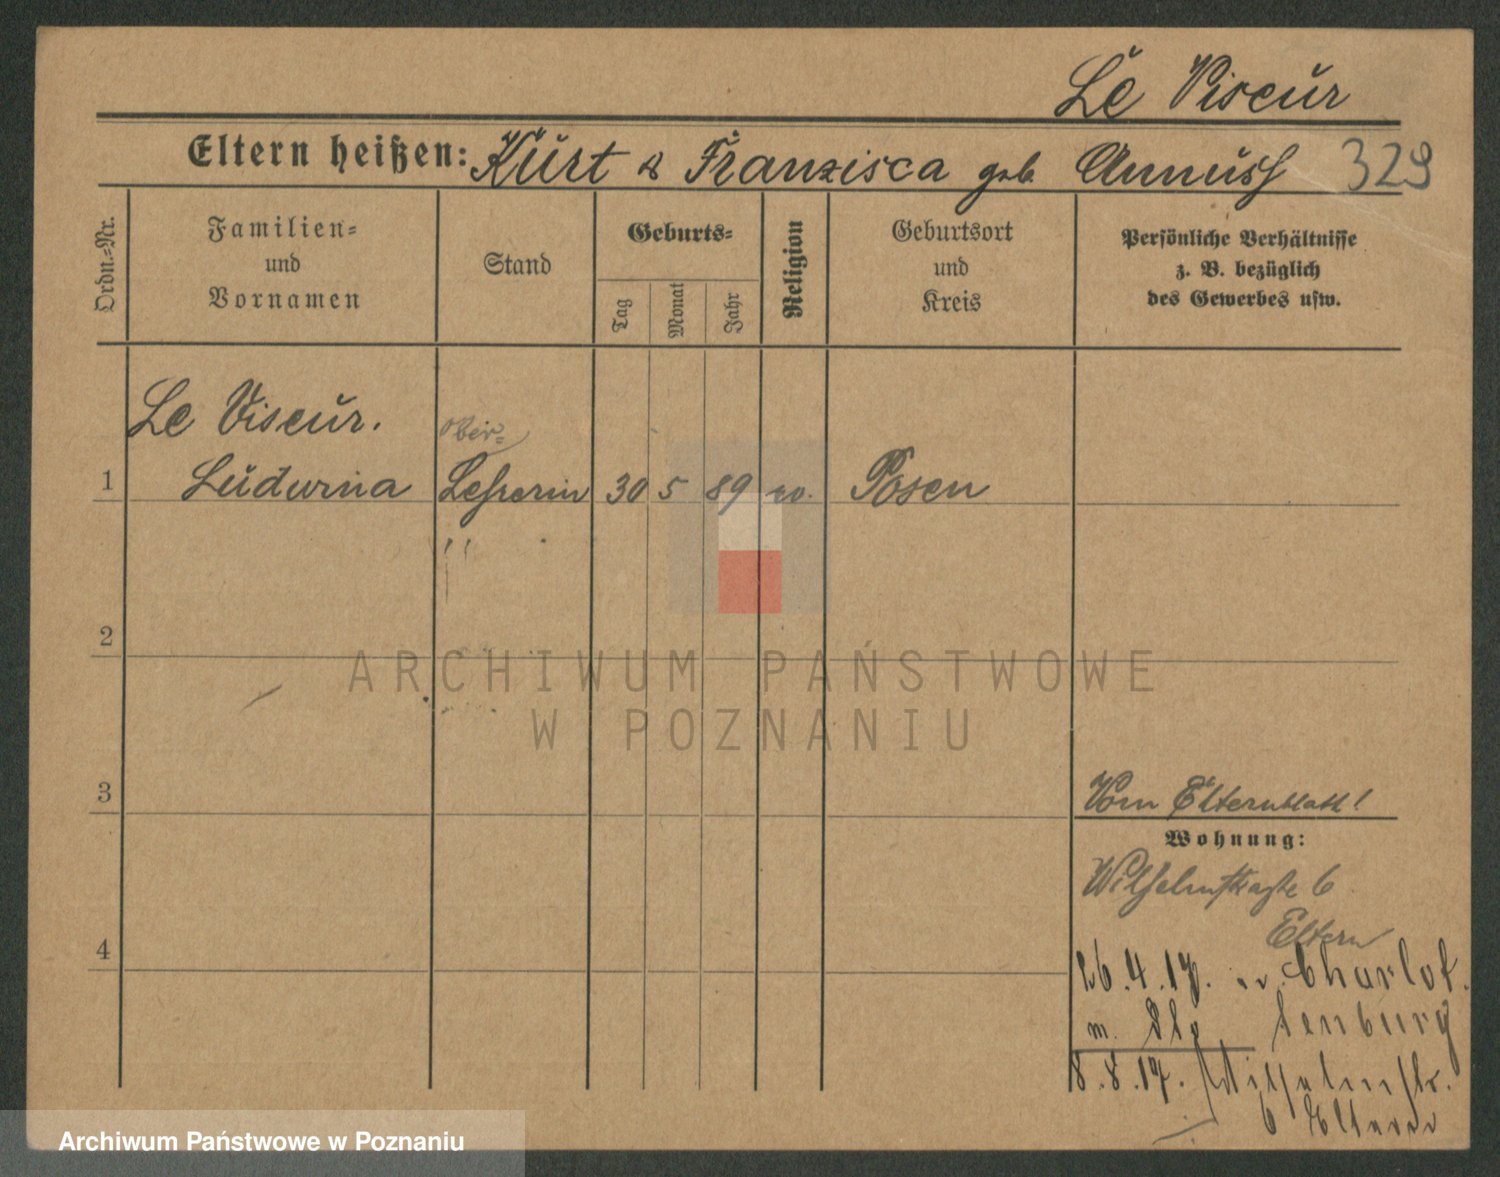 Le Viseur
Eltern heißen: Kurt & Franzisca geb. Annuss 329
Ordn.-Nr.
Familien-
und
Vornamen
Stand
Geburts-
Tag
Monat
Jahr
Religion
Geburtsort
und
Kreis
Persönliche Verhältnisse
z. B. bezüglich
des Gewerbes usw.
Le Viseur.
Ober-
1 Ludwina Lehrerin 30 5 89 ev. Posen
2
ARCHIWUM PAŃSTWOWE
W POZNANIU
3
Vom Elternblatt!
Wohnung:
Wilhelmstraße 6
Eltern
4
26.4.17. Charlot
m. tenburg
8.8.17. Wilhelmstr.
6 Eltern
Archiwum Państwowe w Poznaniu